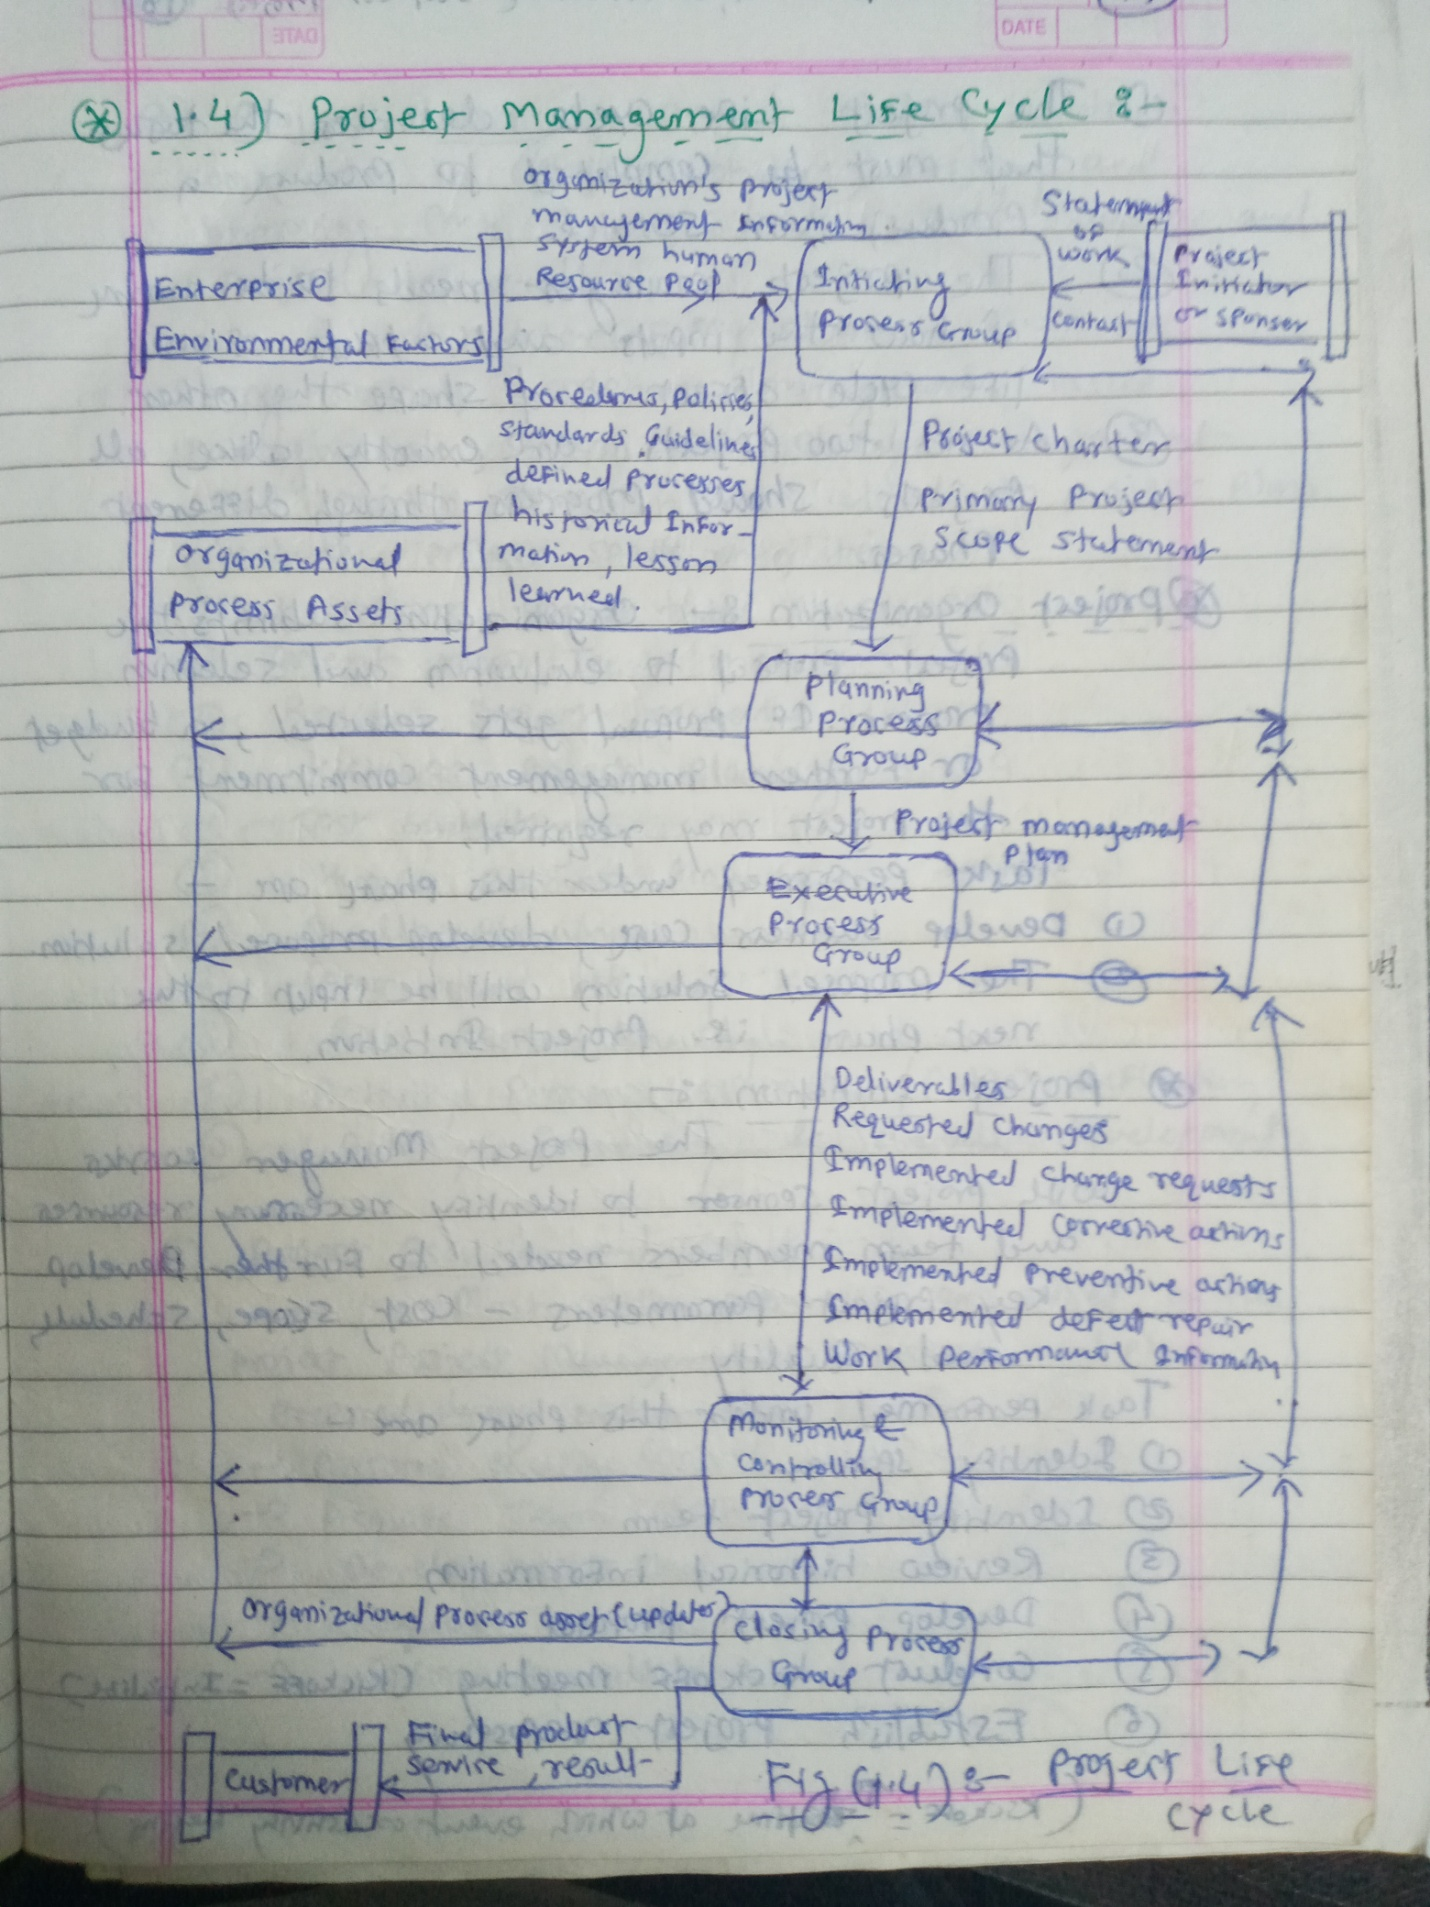 DATE
1.4) Project Management Life Cycle :-
Organization's Project
management Information
System human
Resource Pool
Enterprise
Environmental Factors
Intiating
Process Group
Statement
of
work
contract
Project
Initiator
or sponser
Procedures, Policies,
Standards, Guidelines
defined Processes
historical Infor-
mation, lesson
learned.
Organizational
Process Assets
Project charter
Primary Project
Scope statement
Planning
Process
Group
Project management
Plan
Executive
Process
Group
Deliverables
Requested changes
Implemented change requests
Implemented corrective actions
Implemented preventive actions
Implemented defect repair
Work Performance Information
Monitoring &
Controlling
Process Group
Organizational process asset (updates)
Closing Process
Group
Final product
service, result
Customer
Fig (1.4) :- Project Life
Cycle